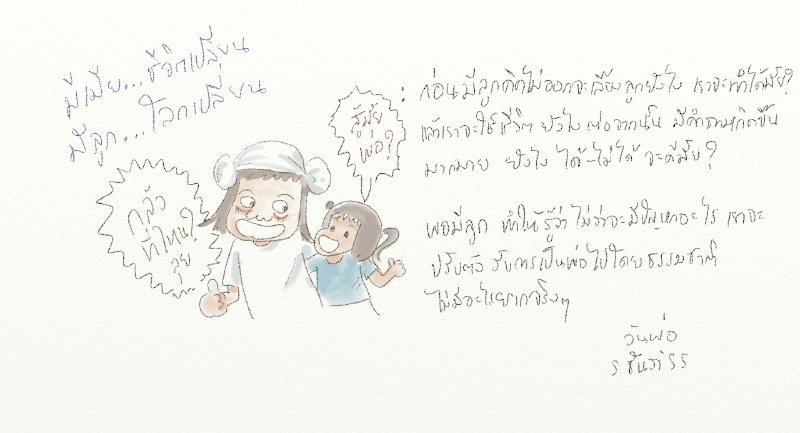 มีเมีย...ชีวิตเปลี่ยน
มีลูก...โลกเปลี่ยน
สู้มั้ย
พ่อ?
กลัว
ที่ไหน?
ลุย
: ก่อนมีลูกคิดไม่ออกจะเลี้ยงลูกยังไง เราจะทำได้มั้ย?
แล้วเราจะใช้ชีวิตๆ ยังไงต่อจากนั้น มีคำถามเกิดขึ้น
มากมาย ยังไง ได้-ไม่ได้ จะดีมั้ย?
พอมีลูก ทำให้รู้ว่า ไม่ว่าจะมีปัญหาอะไร เราจะ
ปรับตัว รับการเป็นพ่อไปโดยธรรมชาติ
ไม่มีอะไรยากจริงๆ
วันพ่อ
5 ธันวา 55